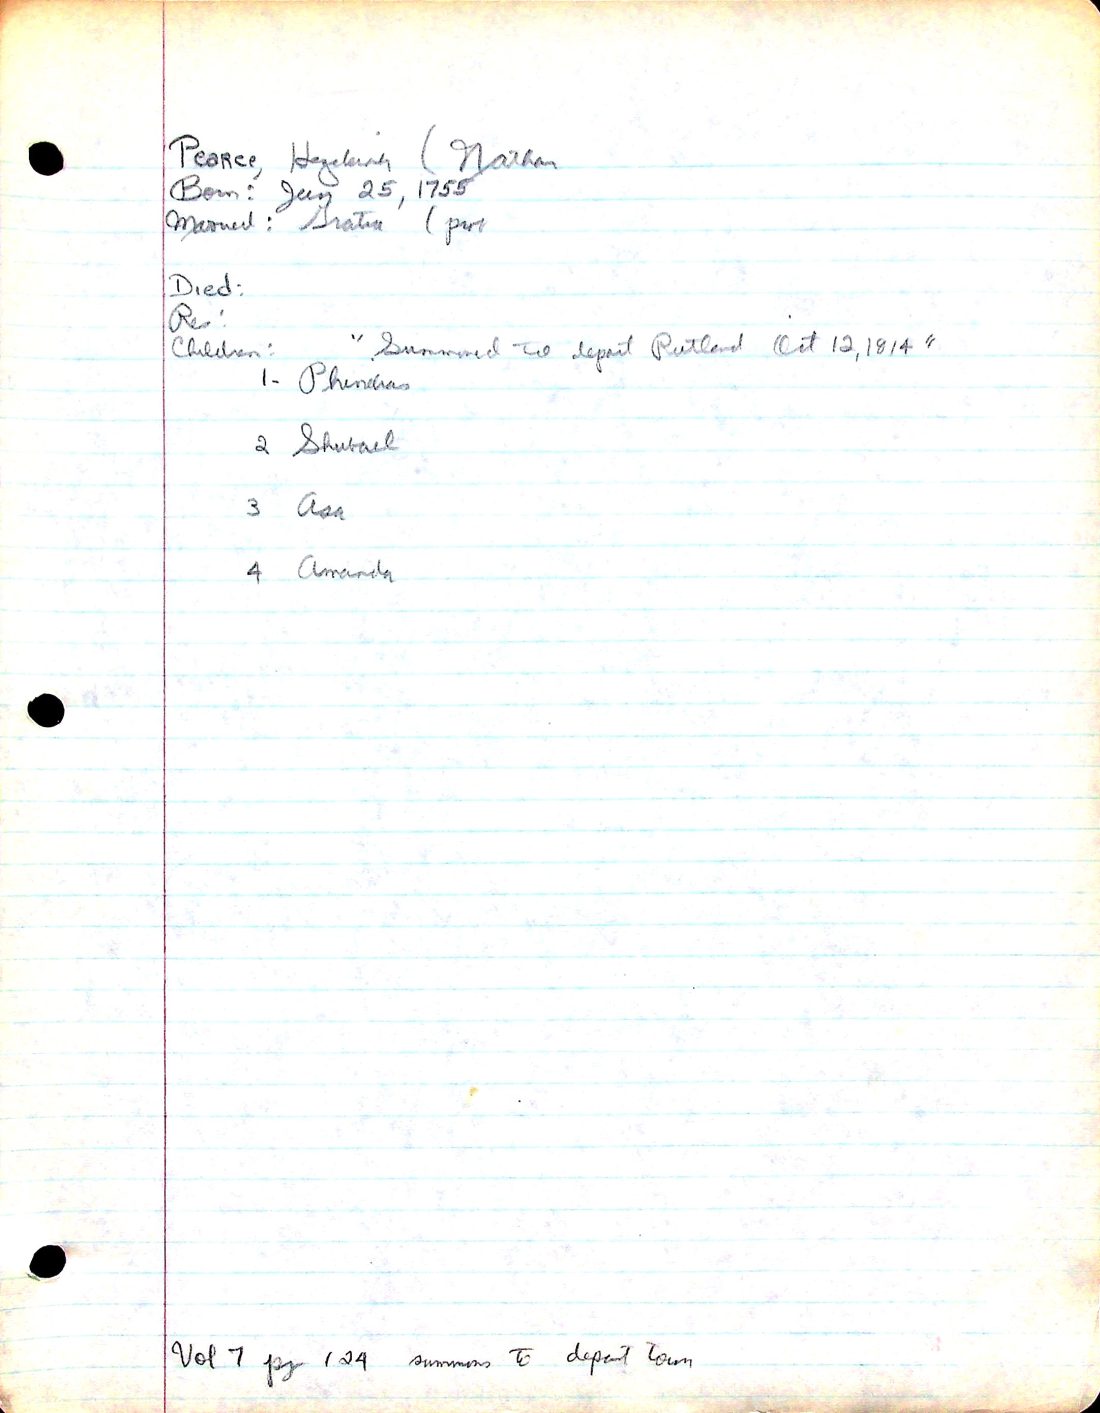 Pearce, Hezekiah ( Nathan
Born: 25, 1755
Married: (
Died:
Res:
Children: "Summoned to depart Rutland Oct 12, 1814"
1- Phinehas
2 Shubael
3 Asa
4 Amanda
Vol 7 pg 124 summons to depart town